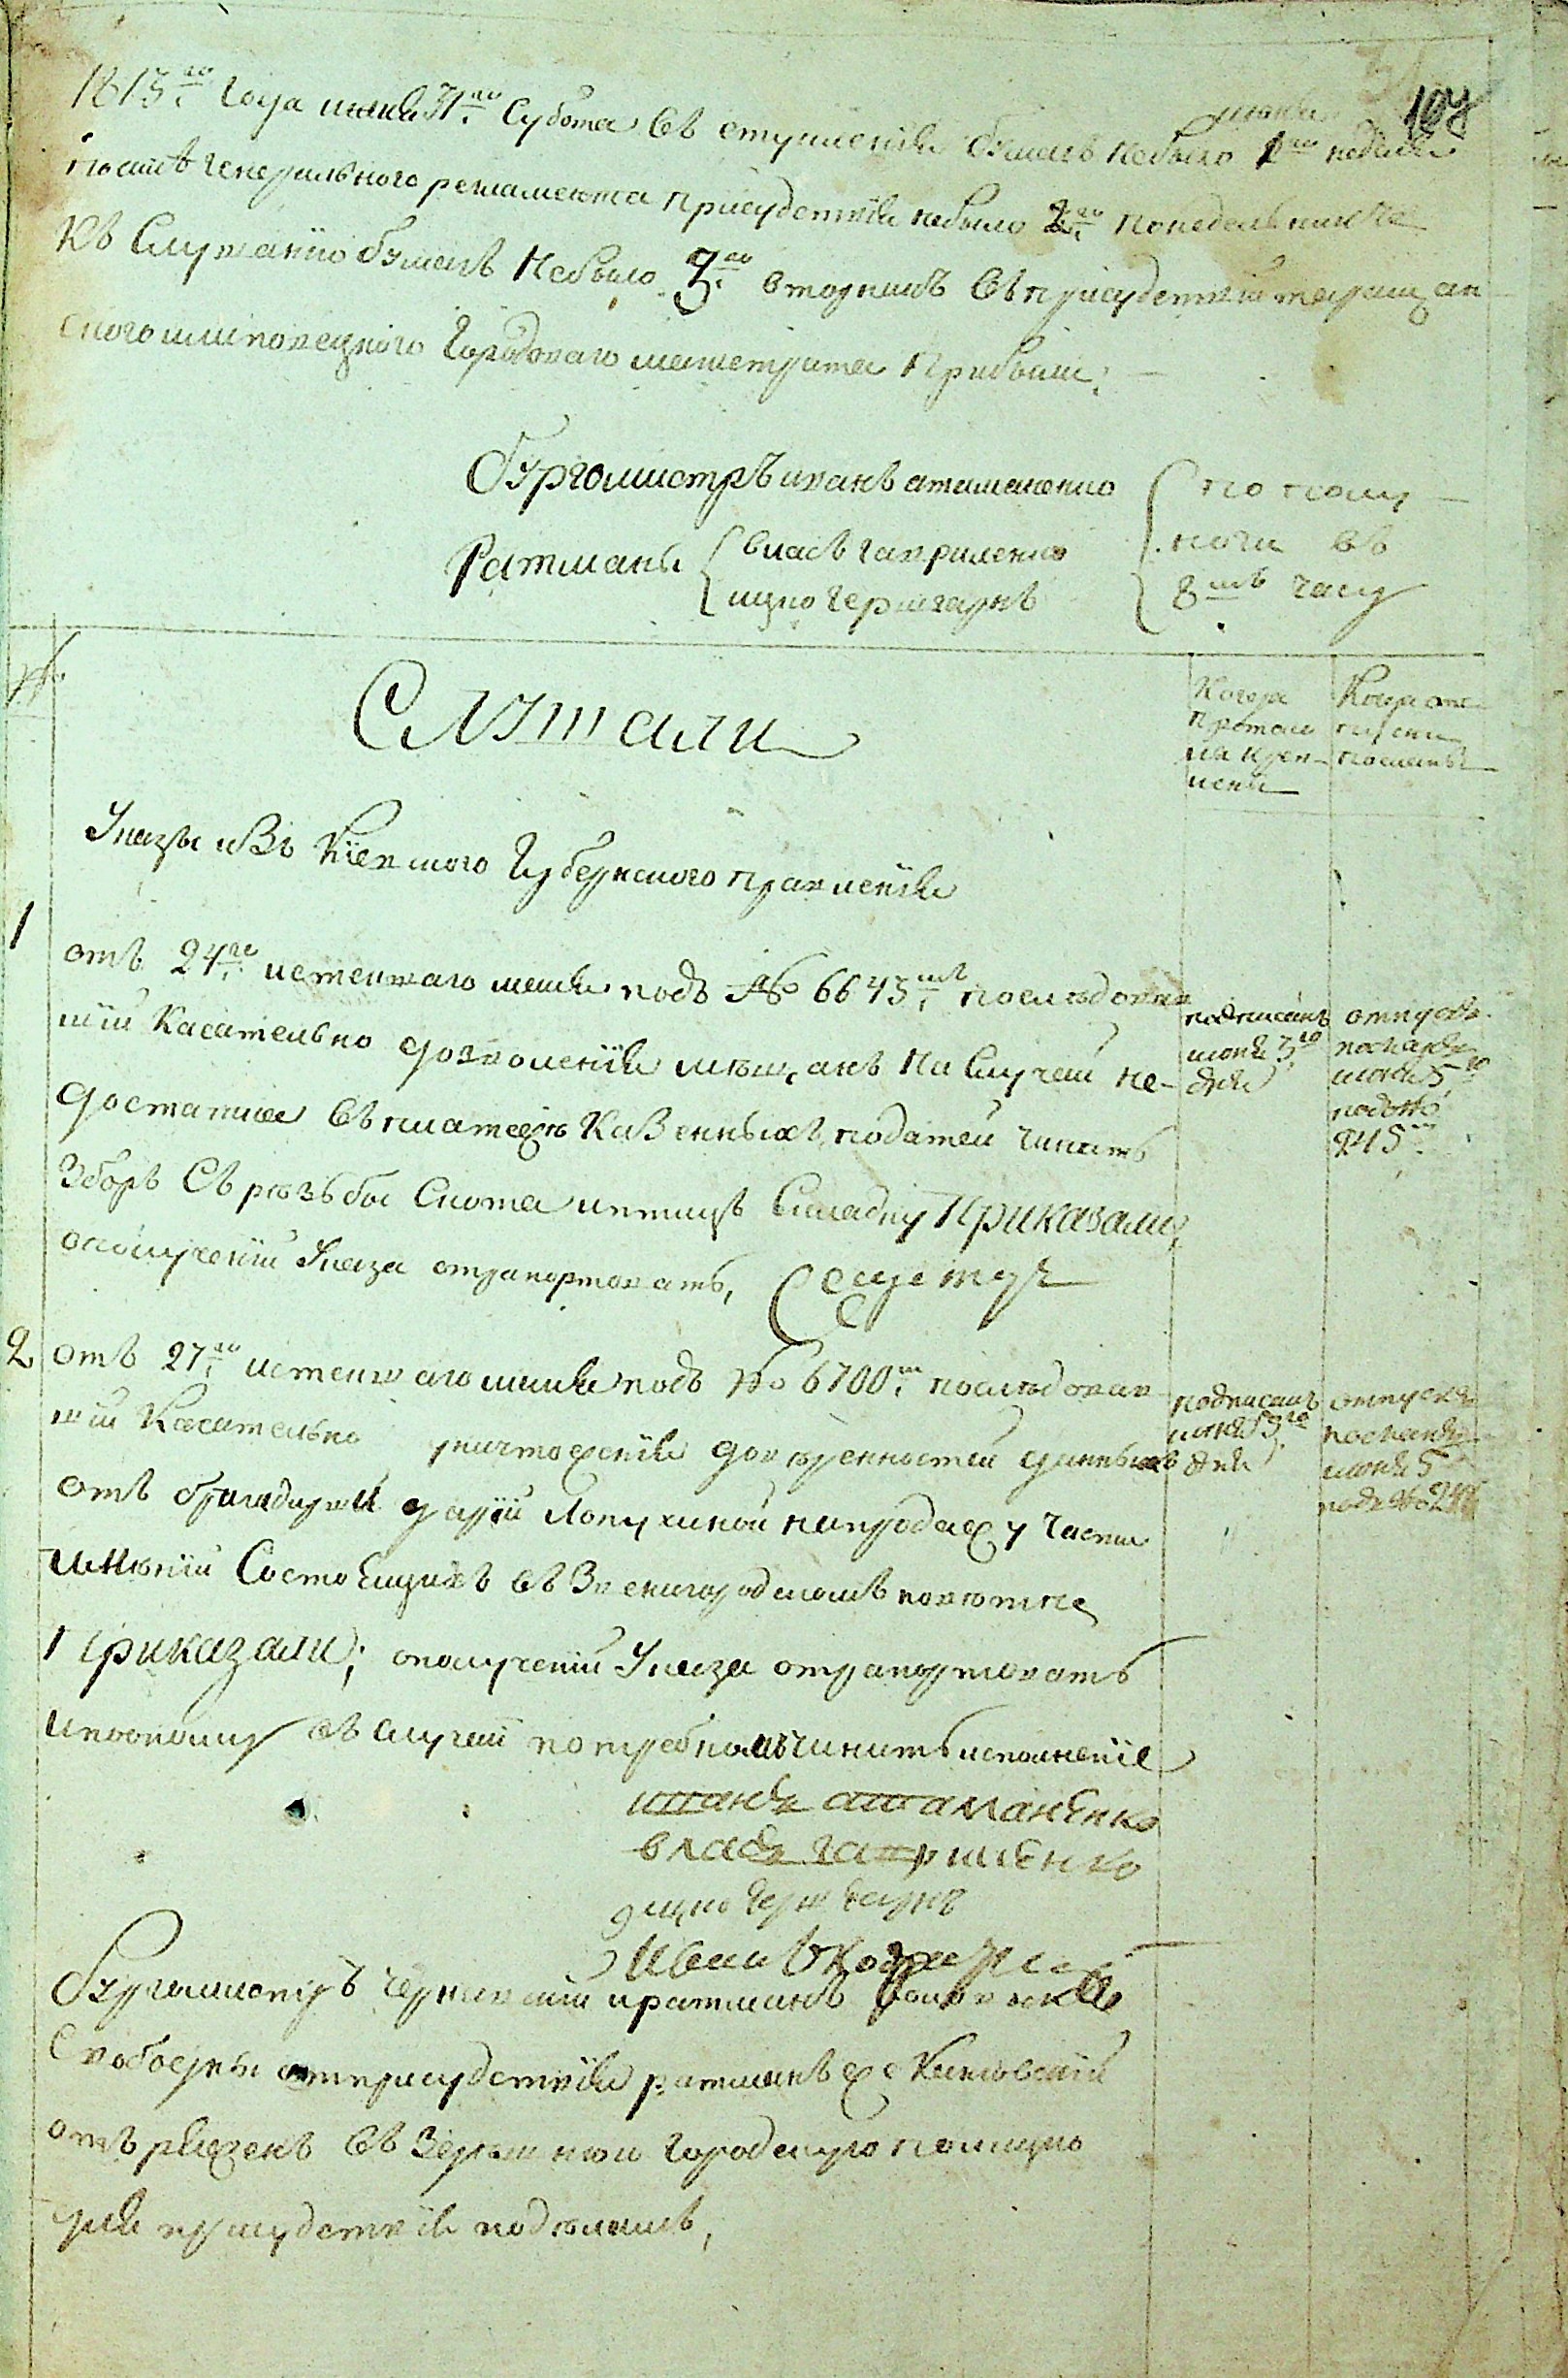 107
1813го Года маия 31го Субота въ ступления бумагъ небыло июня 1го неделя
посилѣ генеральнаго регламента присудствия небыло 2го понедельникъ
къ Слушанию бумагъ Небыло 3го вторникъ въ присудствие таращан
ского шляпонецкого Городоваго магистрата Прибыли:
Бургомистръ иванъ атаманенко
Ратманы власъ гавриленко
ицко
по полу
ночи въ
8мъ часу
№
Слушали
Когда
Протоко
лы крен
лены
Когда от
пуски
посланы
Указы изъ Киевского Губернского правления
1
отъ 24го истекшаго маия подъ № 6643мъ последовав
ший Касательно дозволения мещанъ На Случай не-
достатка въ платежъ Казенныхъ податей чинить
Зборъ Съ рѣзьбы Скота и птицъ Складку Приказали,
ополучении Указа отрапортовать,
подписанъ
июня 3го
дня
отпускъ
посланъ
июня 5го
подъ №
245
2
отъ 27го истекшаго маия подъ № 6700мъ последовав
ший Касательно уничтожения доверенностей данныхъ
отъ бригадирши дарии Лопухиной на продажу части
имѣний Состоящихъ въ Звенигородскомъ поветѣ
Приказали; ополучении Указа отрапортовать
и посилу въ случаи потребномъ чинить исполнение
подписанъ
июня 3го
дня
отпускъ
посланъ
июня 5
подъ № 246
иванъ атаманенко
власъ гавриленко
ицко
Иванъ
Бургомистръ чернявский и ратманъ
Свободны отприсудствия ратманъ
отъ ряженъ въ Здешнюю Городскую полицию
для присудствия